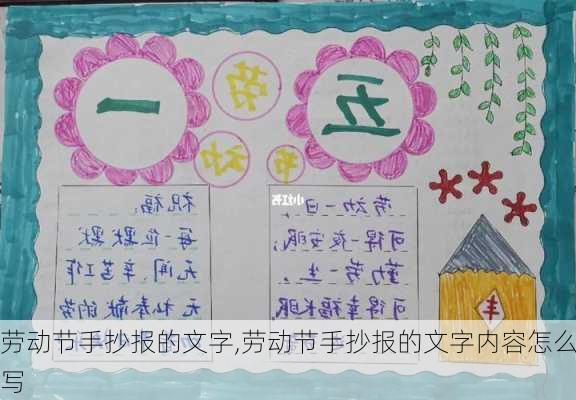 五一
劳
动
节
小红书
劳动一日,
可得一夜安眠;
勤劳一生,
可得幸福长眠
祝福:
每一位默默
无闻、辛苦工作
无私奉献的劳
丰
劳动节手抄报的文字,劳动节手抄报的文字内容怎么
写